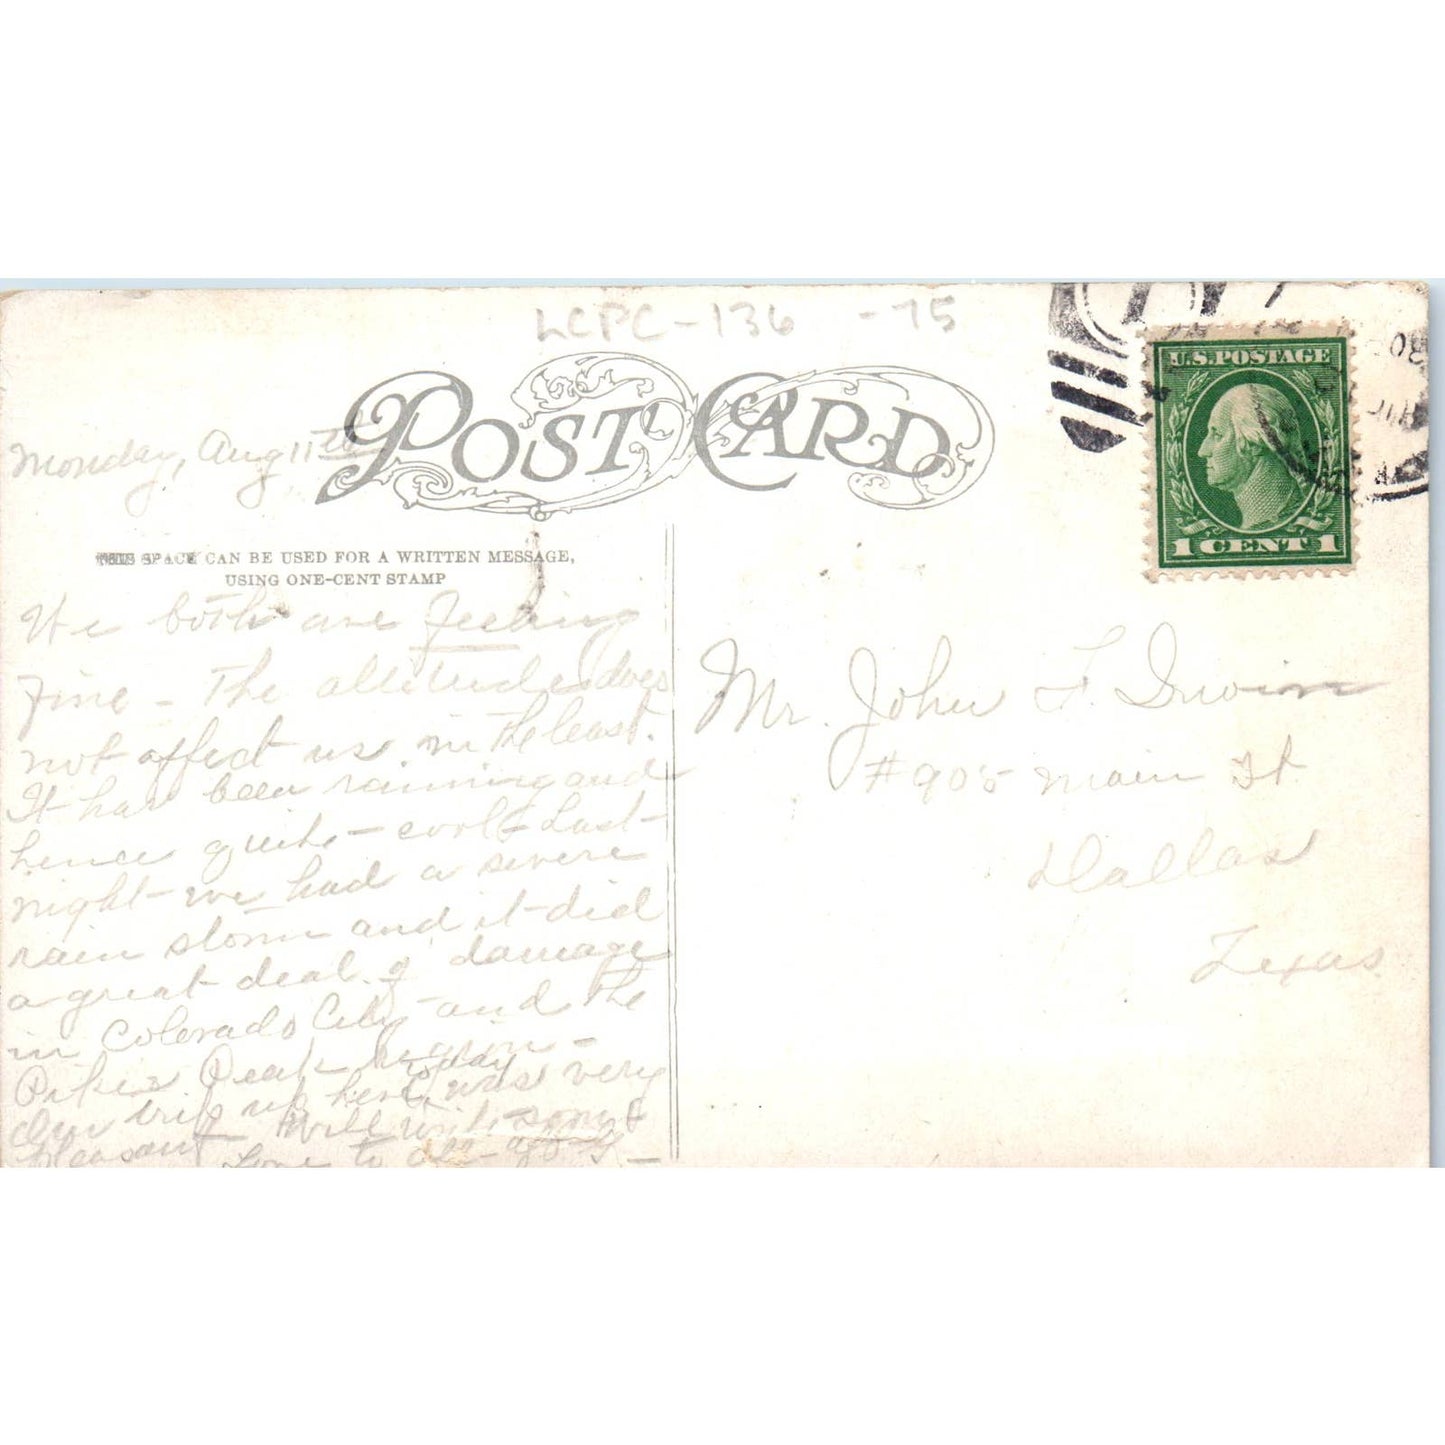 LCPC-136 -75
POST CARD
U.S. POSTAGE
1 CENT 1
Monday, Aug 11th
THIS SPACE CAN BE USED FOR A WRITTEN MESSAGE,
USING ONE-CENT STAMP
We both are feeling
fine - The altitude does
not affect us in the least.
It has been raining and
hence quite cool - Last
night we had a severe
rain storm and it did
a great deal of damage
in Colorado City and the
Pikes Peak region -
Our trip up here today was very
pleasant Will write
Love to all
Mr. John F. Irwin
#905 Main St
Dallas
Texas